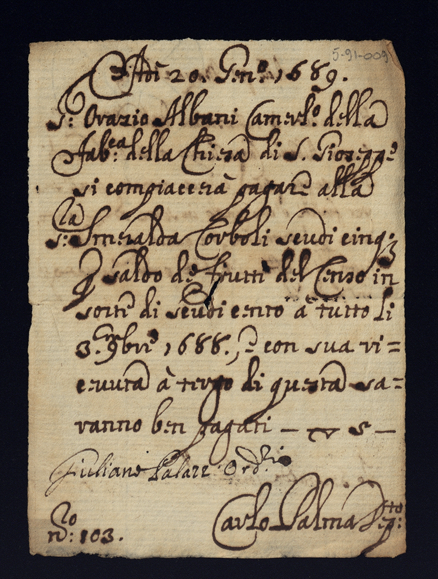 5-91-009
Adi 20. Gen.o 1689.
S.r Orazio Albani Camerl.o della
Fab.ca della Chiesa di S. Gioseppe
si compiacerà pagare alla
S.ra Smeralda Corboli scudi cinq:
p saldo de frutti del Censo in
sorte di scudi cento à tutto li
3. 9bre 1688., e con sua ri=
ceuuta à tergo di questa sa=
ranno ben pagati — 5 —
Giuliano Palazz
Carlo Palma
n.o: 103.